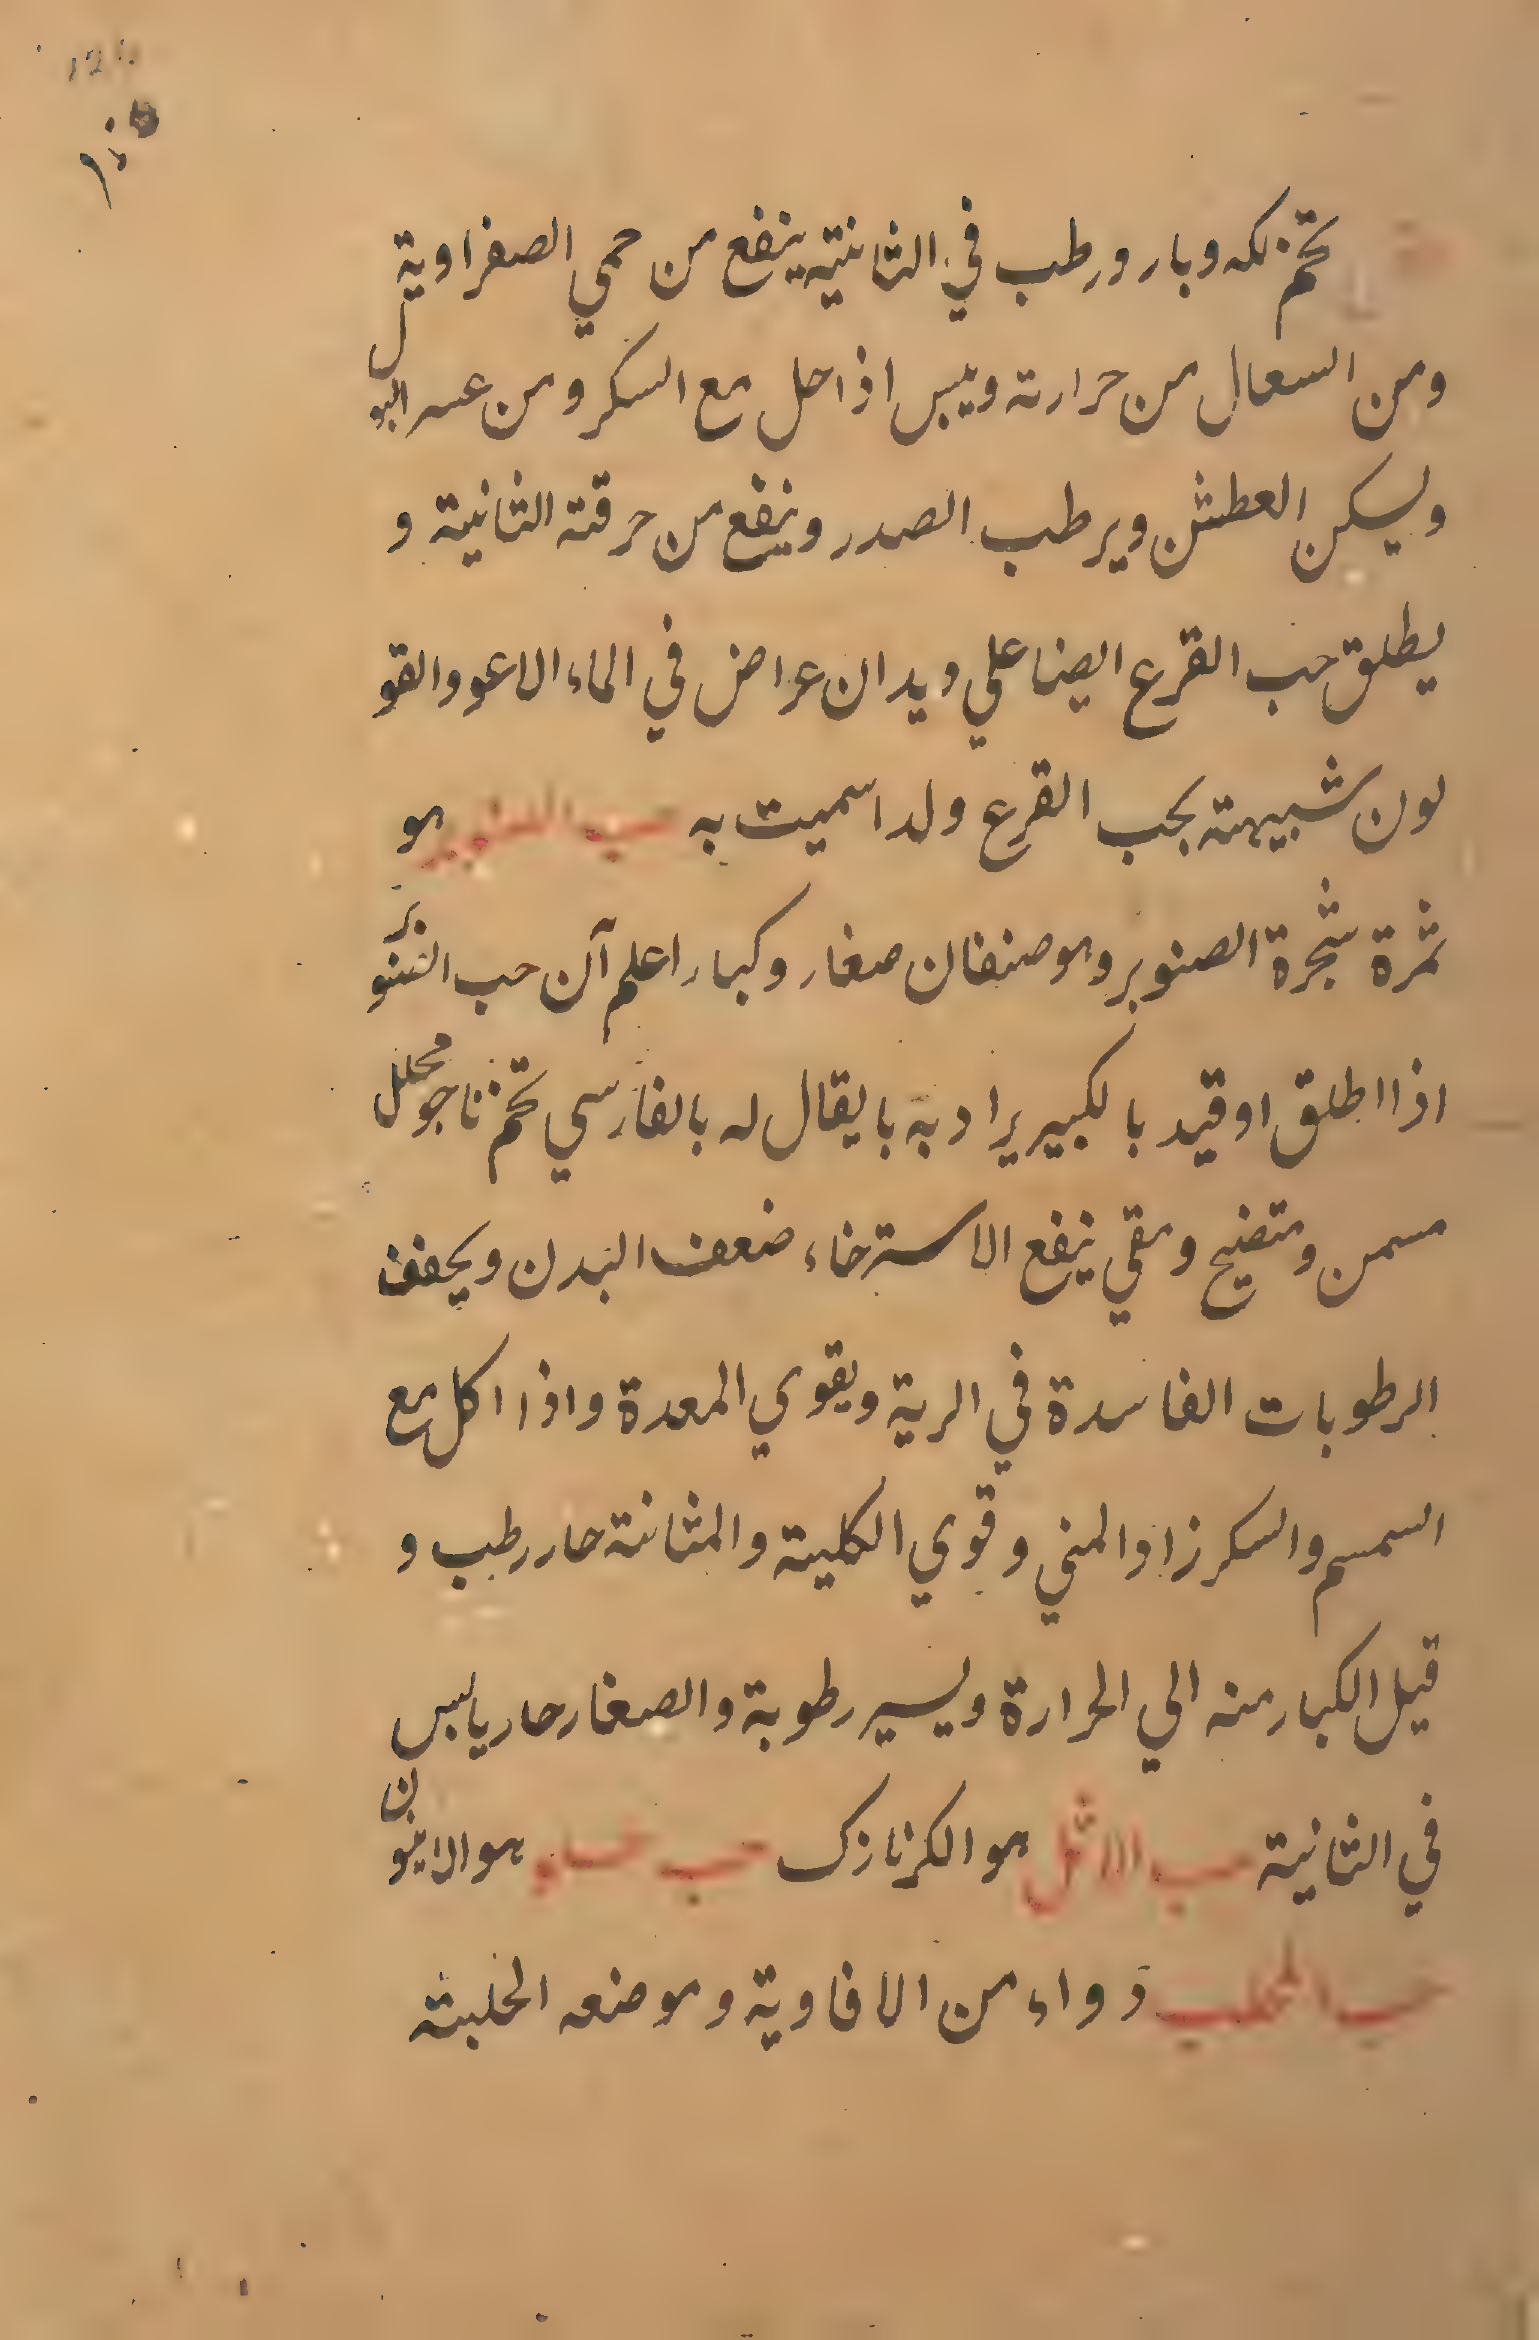 تخم لکه وبارد ورطب في الثانية ينفع من حمي الصفراوية
ومن السعال من حرارته ويبس اذا حل مع السكر ومن عسر البول
ويسكن العطش ويرطب الصدر وينفع من حرقته الثانية و
يطلق حب القرع ايضا علي ويدان عراض في الماء الاعو والقو
لون شبيهته بحب القرع ولدا سميت به حب الصنوبر هو
ثمرة شجرة الصنوبر وهو صنفان صغار وكبار اعلم آن حب الصنوبر
اذا اطلق اوقيد بالكبير يراد به با يقال له بالفارسي تخم ناجو محلل
مسمن ومتضيح ومقي ينفع الاسترخاء ضعف البدن ويجفف
الرطوبات الفاسدة في الرية ويقوي المعدة واذا اكل مع
السمسم والسكر زاد المني وقوي الكليته والمثانة حار رطب و
قيل الكبار منه الي الحرارة ويسير رطوبة والصغار حار يابس
في الثانية حب الاثل هو الكزنازک حب هو الانيون
حب المحلب دواء من الافاوية وموضعه الحلبته